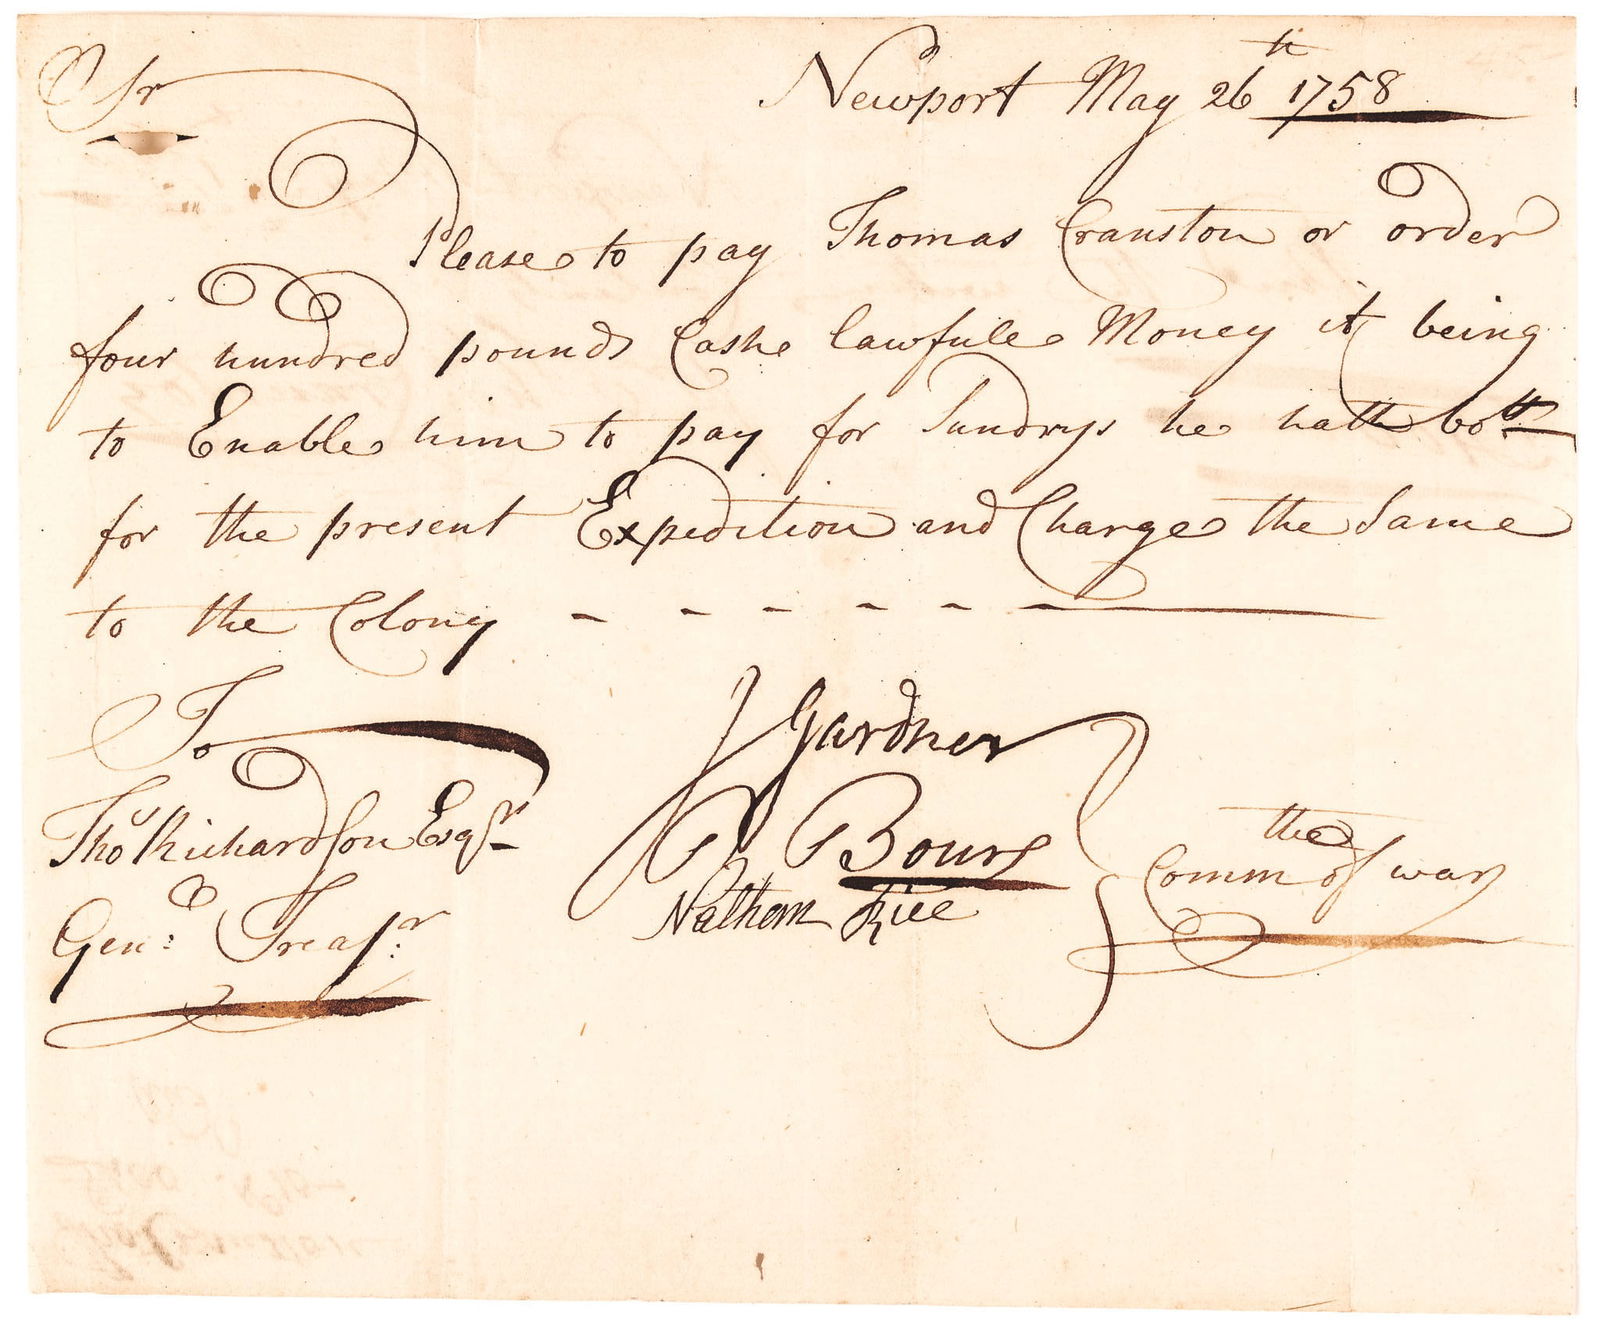 Sr
Newport May 26th 1758
Please to pay Thomas Cranston or order
four hundred pounds Cashe lawfule Money it being
to Enable him to pay for Sundrys he hath bott
for the present Expedition and Charge the Same
to the Colony - - - - - -
To
Thos Richardson Esqr
Genl: Treasr:
J Gardner
P Bours
Nathan Rice
the
Comm of war